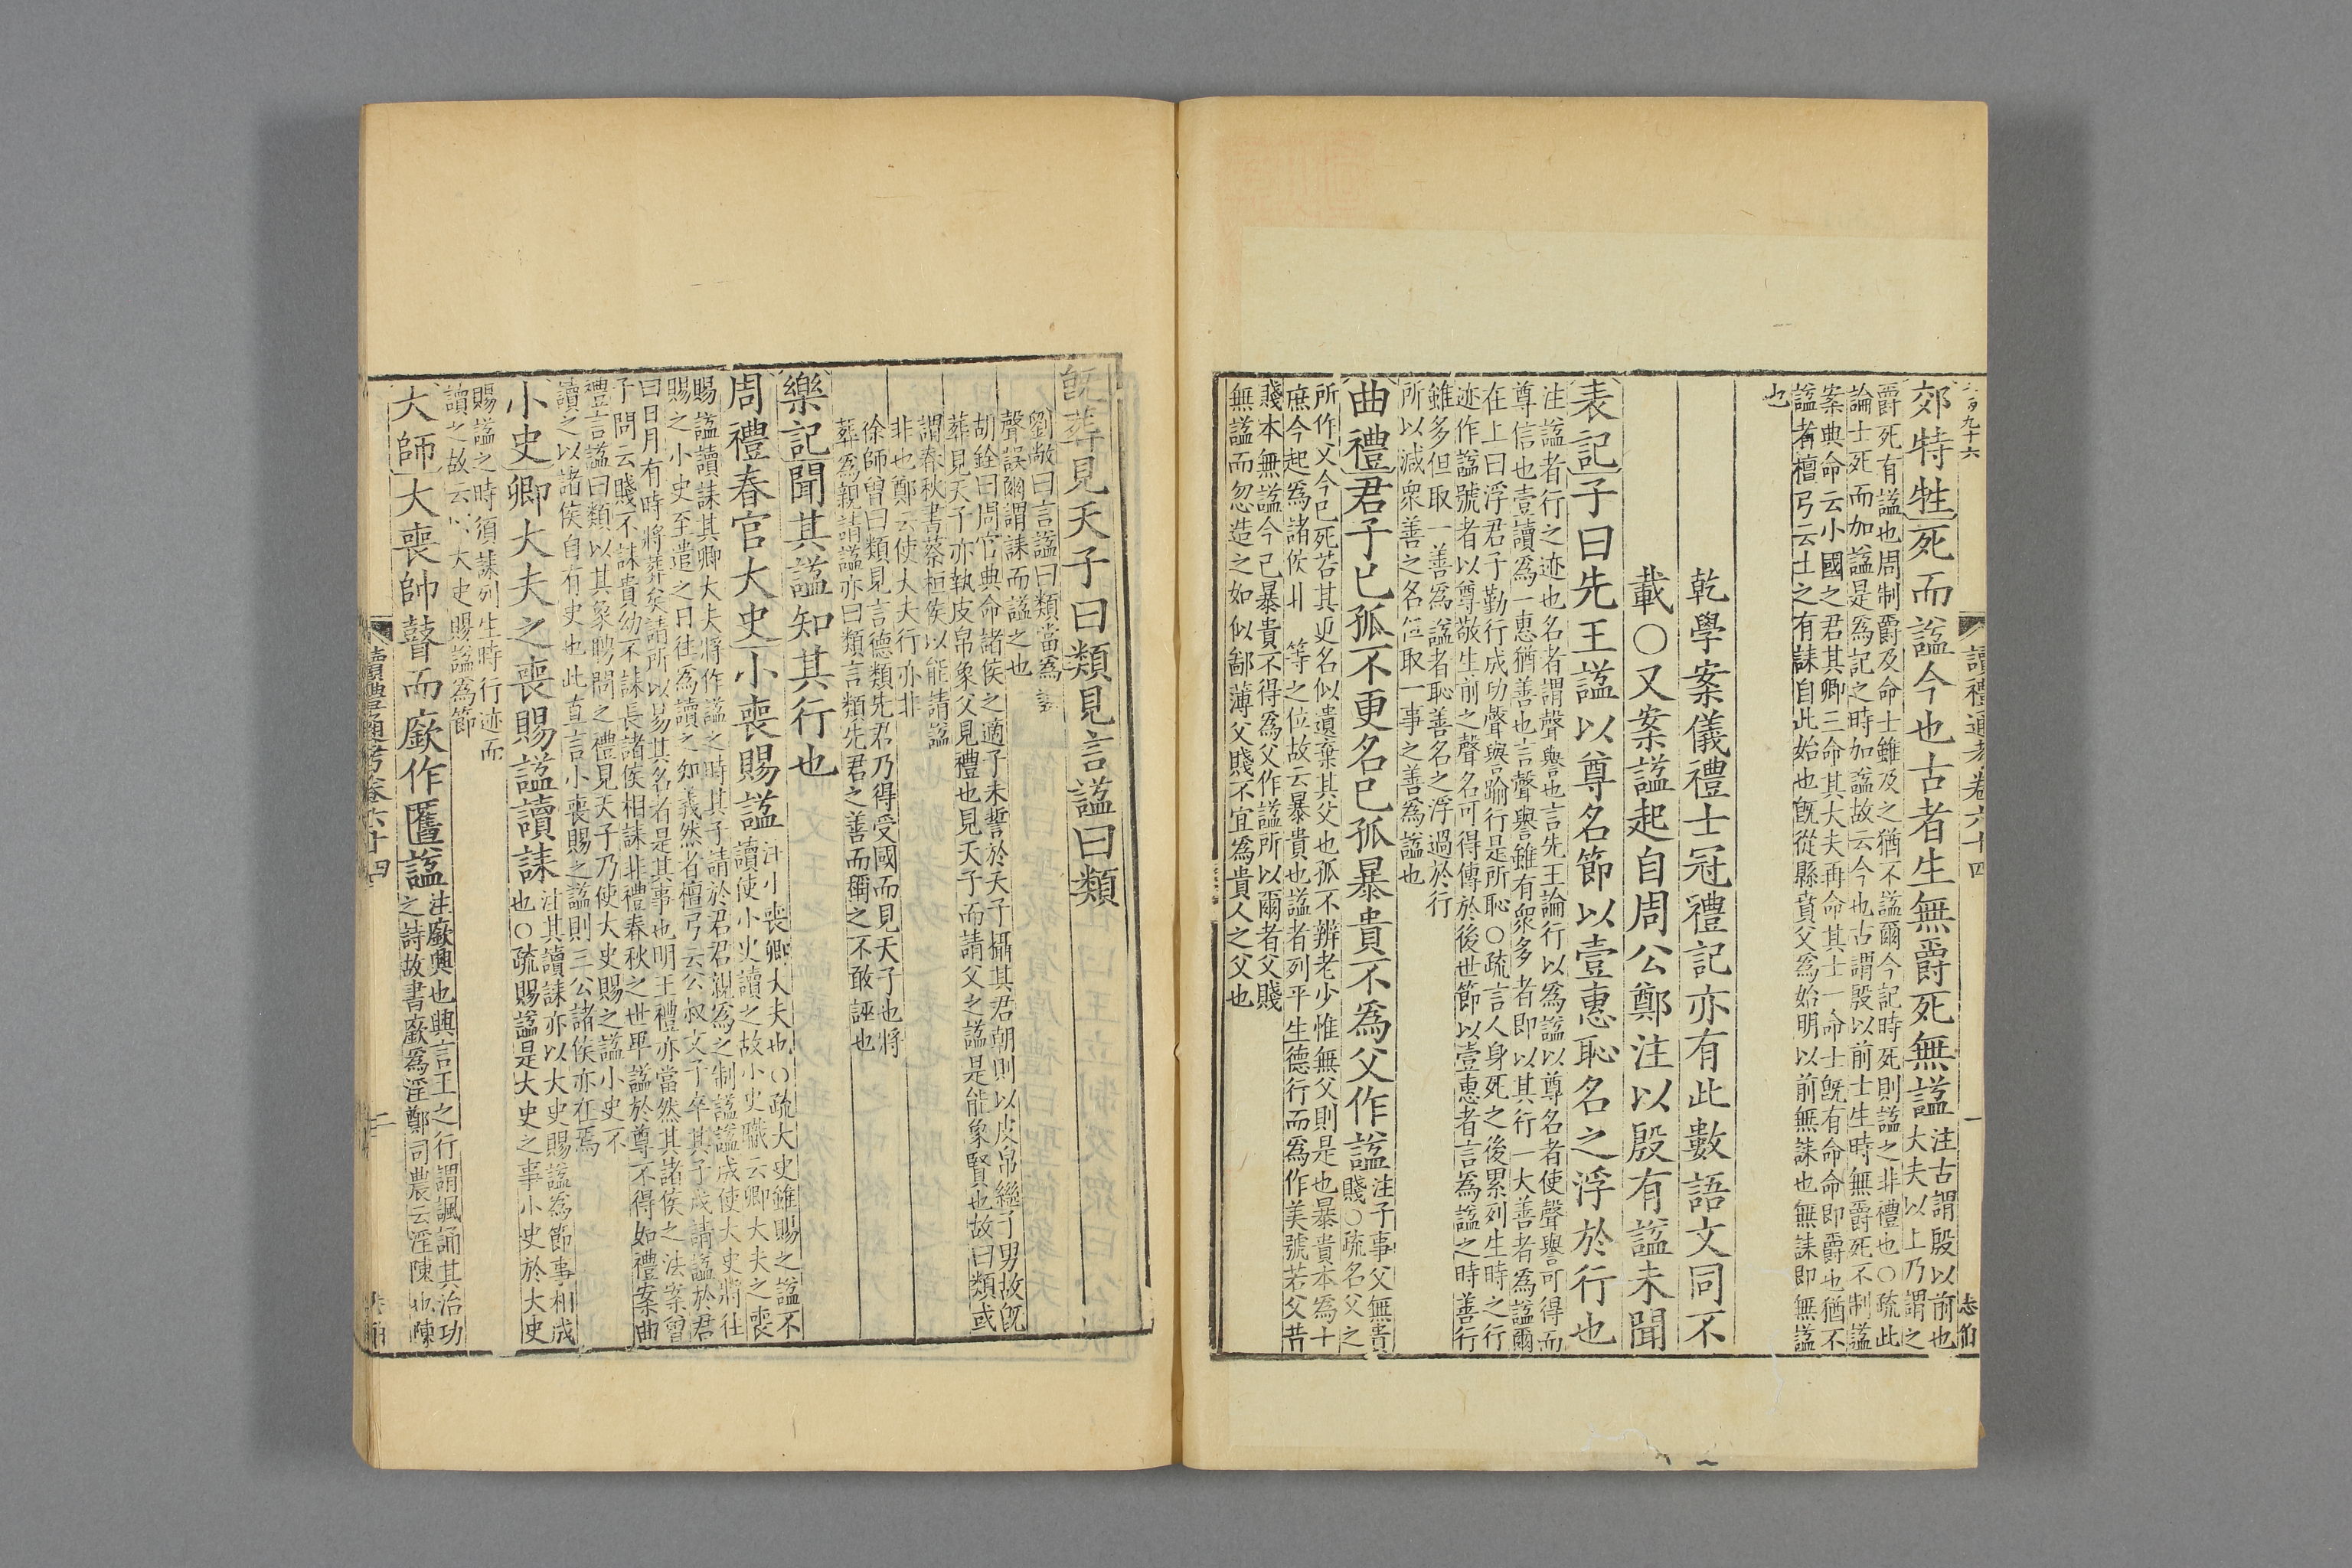 讀禮通考卷六十四
一
郊特牲死而謚今也古者生無爵死無謚注古謂殷以前也
大夫以上乃謂之
爵死有謚也周制爵及命士雖及之猶不謚爾今記時死則謚之非禮也○疏此
論士死而加謚是爲記之時加謚故云今也古謂殷以前士生時無爵死不制謚
案典命云小國之君其卿三命其大夫再命其士一命士旣有命命即爵也猶不
謚者檀弓云士之有誄自此始也旣從縣賁父爲始明以前無誄也無誄即無謚
也
乾學案儀禮士冠禮記亦有此數語文同不
載○又案謚起自周公鄭注以殷有謚未聞
表記子曰先王謚以尊名節以壹惠恥名之浮於行也
注謚者行之迹也名者謂聲譽也言先王論行以爲謚以尊名者使聲譽可得而
尊信也壹讀爲一惠猶善也言聲譽雖有衆多者即以其行一大善者爲謚爾
在上曰浮君子勤行成功聲譽踰行是所恥○疏言人身死之後累列生時之行
迹作謚號者以尊敬生前之聲名可得傳於後世節以壹惠者言爲謚之時善行
雖多但取一善爲謚者恥善名之浮過於行
所以減衆善之名但取一事之善爲謚也
曲禮君子已孤不更名已孤暴貴不爲父作謚注子事父無貴
賤○疏名父之
所作父今已死若其更名似遺棄其父也孤不辨老少惟無父則是也暴貴本爲士
庶今起爲諸侯 等之位故云暴貴也謚者列平生德行而爲作美號若父昔
賤本無謚今已暴貴不得爲父作謚所以爾者父賤
無謚而忽造之如似鄙薄父賤不宜爲貴人之父也
旣葬見天子曰類見言謚曰類
劉敞曰言謚曰類當爲誄
聲誤爾謂誄而謚之也
胡銓曰周官典命諸侯之適子未誓於天子攝其君朝則以皮帛繼子男故旣
葬見天子亦執皮帛象父見禮也見天子而請父之謚是能象賢也故曰類或
謂春秋書蔡桓侯以能請謚
非也鄭云使大夫行亦非
徐師曾曰類見言德類先君乃得受國而見天子也將
葬爲親請謚亦曰類言類先君之善而稱之不敢誣也
樂記聞其謚知其行也
周禮春官大史小喪賜謚注小喪卿大夫也○疏大史雖賜之謚不
讀使小史讀之故小史職云卿大夫之喪
賜謚讀誄其卿大夫將作謚之時其子請於君君親爲之制謚謚成使大史將往
賜之小史至遣之日往爲讀之知義然者檀弓云公叔文子卒其子戍請謚於君
曰日月有時將葬矣請所以易其名者是其事也明王禮亦當然其諸侯之法案曾
子問云賤不誄貴幼不誄長諸侯相誄非禮春秋之世卑謚於尊不得如禮案曲
禮言謚曰類以其象聘問之禮見天子乃使大史賜之謚小史不
讀之以諸侯自有史也此直言小喪賜之謚則三公諸侯亦在焉
小史卿大夫之喪賜謚讀誄注其讀誄亦以大史賜謚爲節事相成
也○疏賜謚是大史之事小史於大史
賜謚之時須誄列生時行迹而
讀之故云以大史賜謚爲節
大師大喪帥瞽而廞作匶謚注廞興也興言王之行謂諷誦其治功
之詩故書廞爲淫鄭司農云淫陳也陳
讀禮通考卷六十四
二